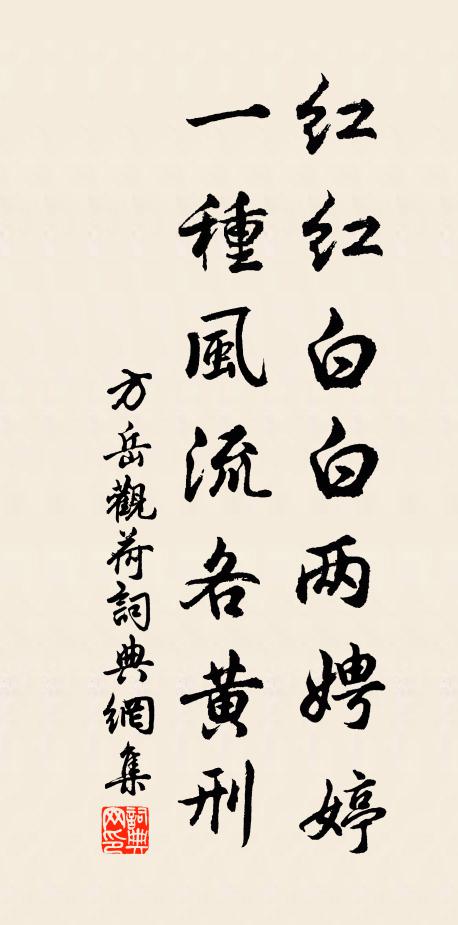 红红白白两娉婷
一種風流各黄刑
方岳觀荷詞典網集
詞典网印